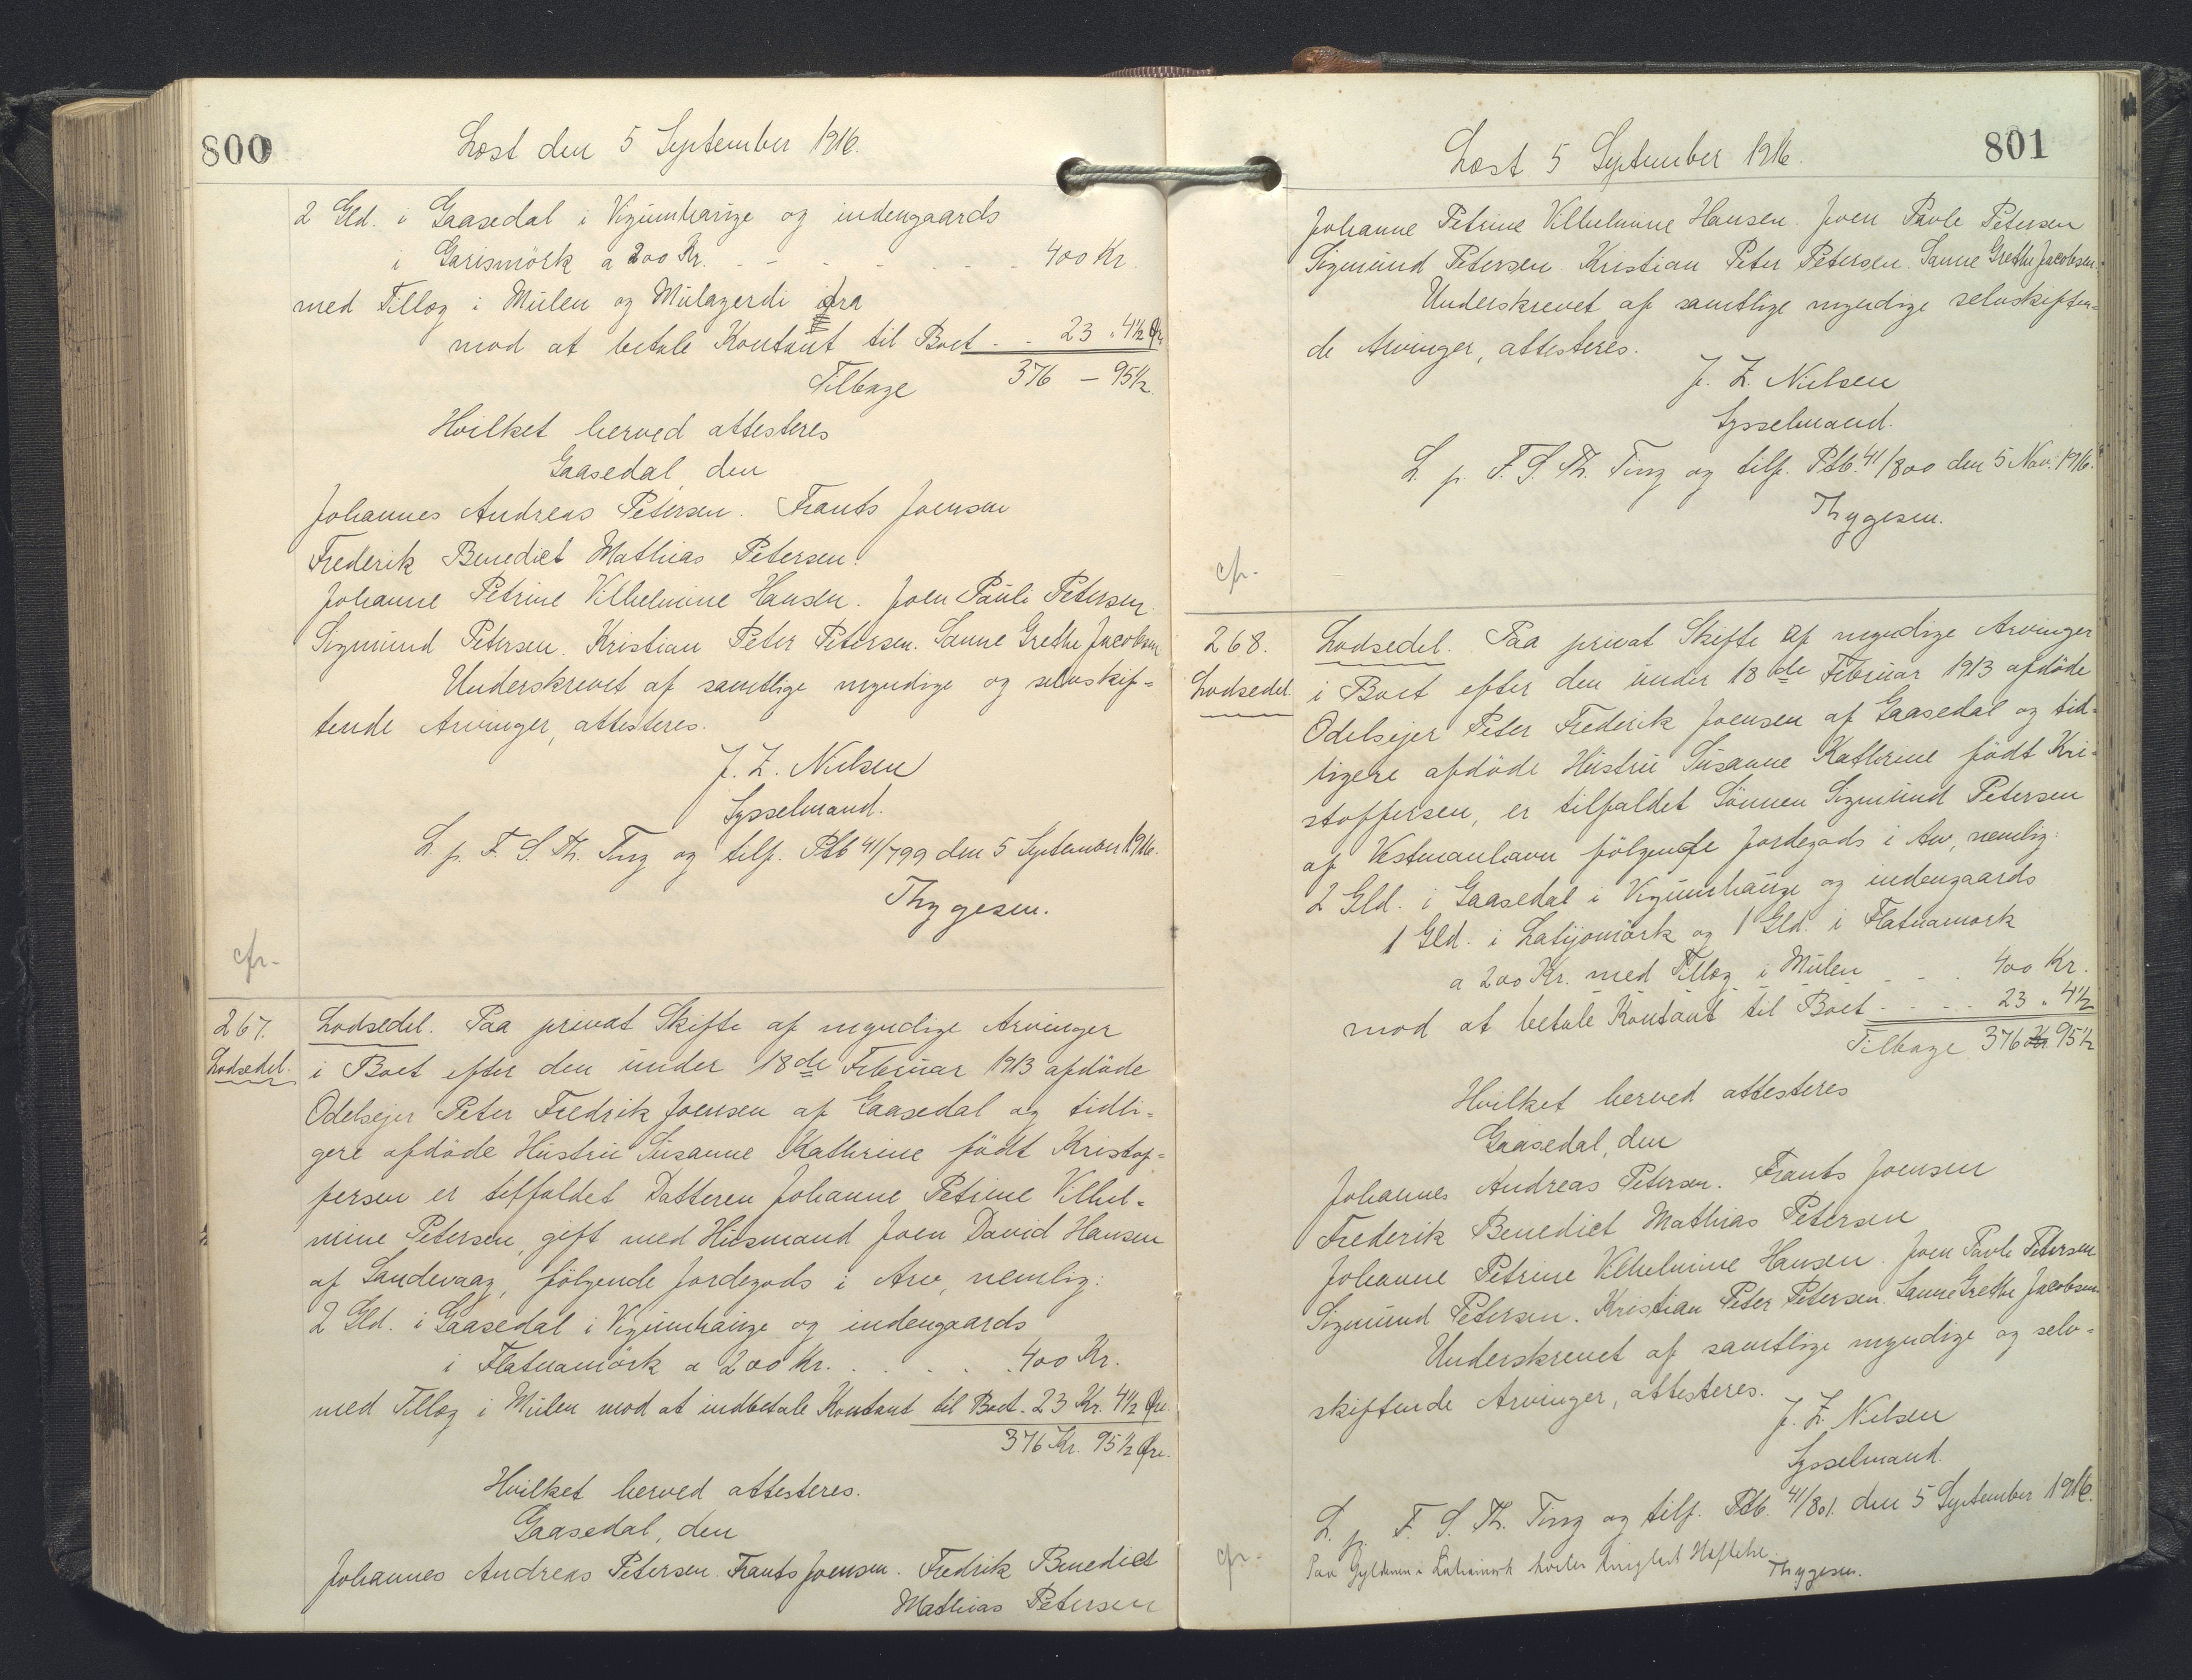 800
Læst den 5 September 1916.
2 Gld. i Gaasedal i Viguunhauge og indengaards
i Garismörk a 200 Kr. - - - - - - - 400 Kr.
med Tillæg i Múlen og Múlagerdi
mod at betale Kontant til Boet - - 23 " 4½ Øre
Tilbage 376 – 95½
Hvilket herved attesteres
Gaasedal, den
Johannes Andreas Petersen. Frants Joensen
Frederik Benedict Mathias Petersen.
Johanne Petrine Vilhelmine Hansen. Joen Pauli Petersen.
Sigmund Petersen. Kristian Peter Petersen. Sanne Grethe Jacobsen
Underskrevet af samtlige myndige og selvskif=
tende Arvinger, attesteres.
J. Z. Nielsen
Sysselmand.
L. p. F. S. Th. Ting og tilf. Ptb 41/799 den 5 September 1916.
Thygesen.
cfr-
267.
Lodsedel.
Lodsedel. Paa privat Skifte af myndige Arvinger
i Boet efter den under 18de Februar 1913 afdöde
Odelsejer Peter Fredrik Joensen af Gaasedal og tidli=
gere afdöde Hustru Susanne Kathrine födt Kristof=
fersen er tilfaldet Datteren Johanne Petrine Vilhel=
mine Petersen, gift med Husmand Joen David Hansen
af Sandevaag, fölgende Jordegods i Arv, nemlig:
2 Gld. i Gaasedal i Viguunhauge og indengaards
i Flatnamörk a 200 Kr. . . . . . 400 Kr.
med Tillæg i Múlen mod at indbetale Kontant til Boet - 23 Kr. 4½ Øre.
376 Kr. 95½ Øre.
Hvilket herved attesteres.
Gaasedal, den
Johannes Andreas Petersen. Frants Joensen. Fredrik Benedict
Mathias Petersen
Læst 5 September 1916.
801
Johanne Petrine Vilhelmine Hansen. Joen Pavle Petersen
Sigmund Petersen. Kristian Peter Petersen. Sanne Grethe Jacobsen.
Underskrevet af samtlige myndige selvskiften=
de Arvinger, attesteres.
J. Z. Nielsen
Sysselmand.
L. p. F. S. Th. Ting og tilf. Ptb. 41/800 den 5 Nov. 1916.
Thygesen.
cfr-
268.
Lodsedel.
Lodsedel. Paa privat Skifte af myndige Arvinger
i Boet efter den under 18de Februar 1913 afdöde
Odelsejer Peter Frederik Joensen af Gaasedal og tid=
ligere afdöde Hustru Susanne Kathrine födt Kri=
stoffersen, er tilfaldet Sönnen Sigmund Petersen
af Vestmanhavn fölgende Jordegods i Arv, nemlig:
2 Gld. i Gaasedal i Viguunhauge og indengaards
1 Gld. i Latijomörk og 1 Gld. i Flatnamork
a 200 Kr. med Tillæg i Múlen - - . 400 Kr.
mod at betale Kontant til Boet - - - - - 23 " 4½
Tilbage 376 Kr. 95½
Hvilket herved attesteres
Gaasedal, den
Johannes Andreas Petersen. Frants Joensen
Frederik Benedict Mathias Petersen
Johanne Petrine Vilhelmine Hansen. Joen Pavle Petersen
Sigmund Petersen. Kristian Peter Petersen. Sanne Grethe Jacobsen.
Underskrevet af samtlige myndige og selv=
skiftende Arvinger, attesteres.
J. Z. Nielsen
Sysselmand.
L. p. F. S. Th. Ting og tilf. Ptb. 41/801. den 5 September 1916.
cfr-
Paa Gyldenen i hviler tinglæst Hæftelse.
Thygesen.